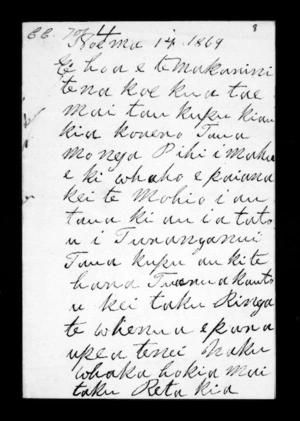 8
Noema 14. 1869
E hoa e te Makarini
tena koe kua tae
mai tau kupu kiau
kia korero Taua
mo nga Pihi i mahue
e ki whaho e paiana
kei te Mohio i au
taua ki au i a tatou
u i Turanganui
Taua kupu au ki te
hana kauta
u kei taku Ringa
te whenua e pana
tenei Naku
whaka hokia mai
taku Reta kia